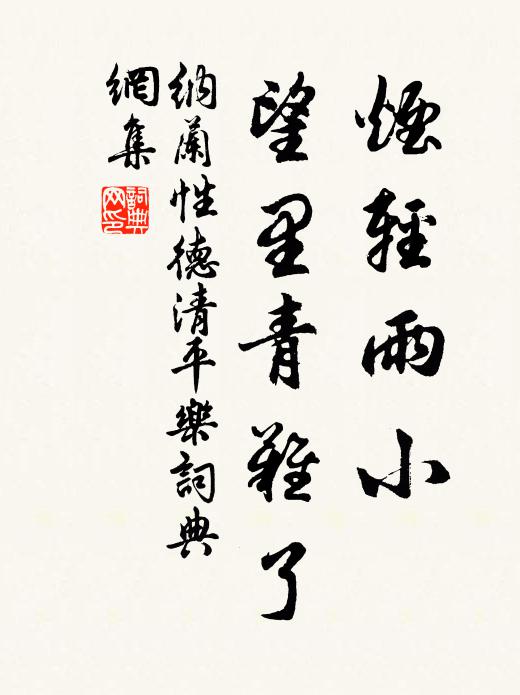 煙輕雨小
望里青難了
納蘭性德清平樂詞典
網集
詞典
网印